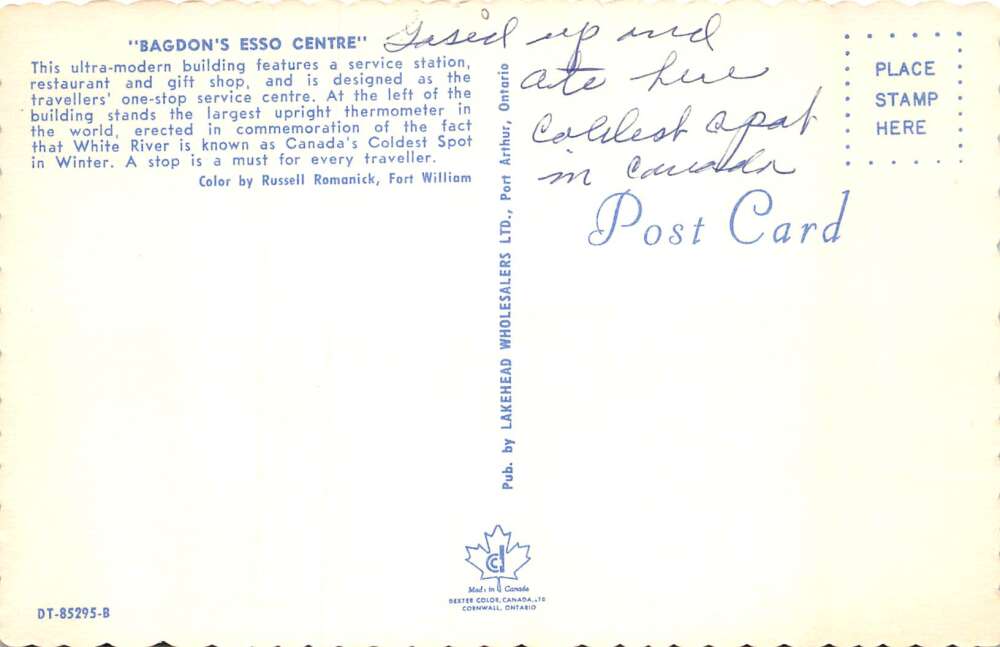 "BAGDON'S ESSO CENTRE"
This ultra-modern building features a service station,
restaurant and gift shop, and is designed as the
travellers' one-stop service centre. At the left of the
building stands the largest upright thermometer in
the world, erected in commemoration of the fact
that White River is known as Canada's Coldest Spot
in Winter. A stop is a must for every traveller.
Color by Russell Romanick, Fort William
Gased up and
ate here
Coldest spot
in Canada
PLACE
STAMP
HERE
Post Card
Pub. by LAKEHEAD WHOLESALERS LTD., Port Arthur, Ontario
DT-85295-B
cd
Made in Canada
DEXTER COLOR, CANADA, LTD
CORNWALL, ONTARIO